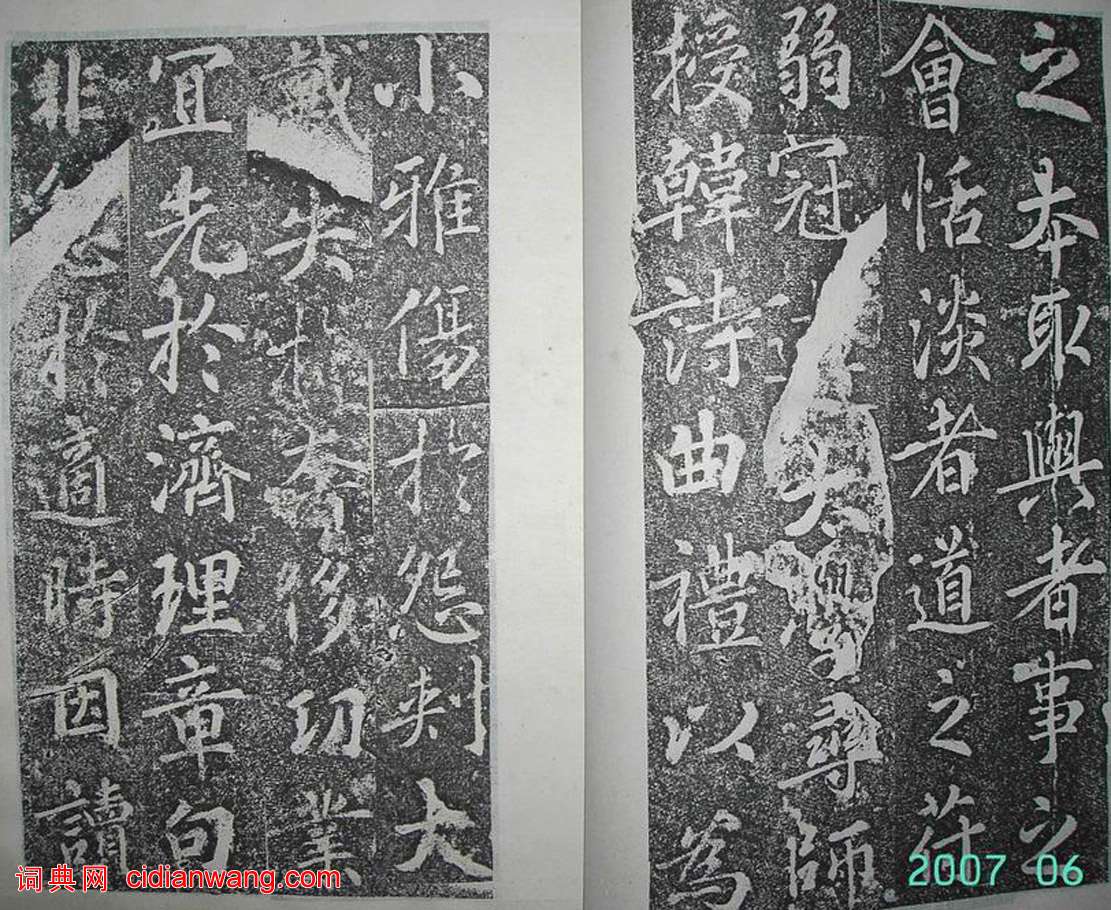 之本取與者事之
會恬淡者道之符
弱冠大學尋師
授韓詩曲禮以為
小雅傷於怨刺大
戴失於奢侈功業
宜先於濟理章句
非於適時因讀
词典网 cidianwang.com
2007 06